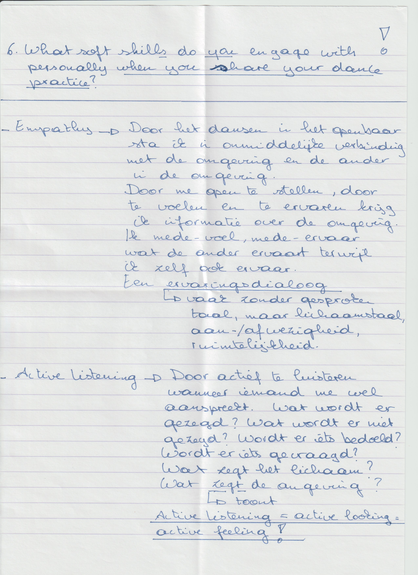 6. What soft skills do you engage with
personally when you share your dance
practice?
- Empathy → Door het dansen in het openbaar
sta ik in onmiddelijke verbindig
met de omgeving en de ander
in de omgeving.
Door me open te stellen, door
te voelen en te ervaren krijg
ik informatie over de omgeving.
Ik mede-voel, mede-ervaar
wat de ander ervaart terwijl
ik zelf ook ervaar.
Een ervaringsdialoog
↳ vaak zonder gesproken
taal, maar lichaamstaal,
aan-/afwezigheid,
ruimtelijkheid.
- Active Listening → Door actief te luisteren
wanneer iemand me wel
aanspreekt. Wat wordt er
gezegd? Wat wordt er niet
gezegd? Wordt er iets bedoeld?
Wordt er iets gevraagd?
Wat zegt het lichaam?
Wat zegt de omgeving?
↳ toont
Active Listening = active looking =
active feeling!